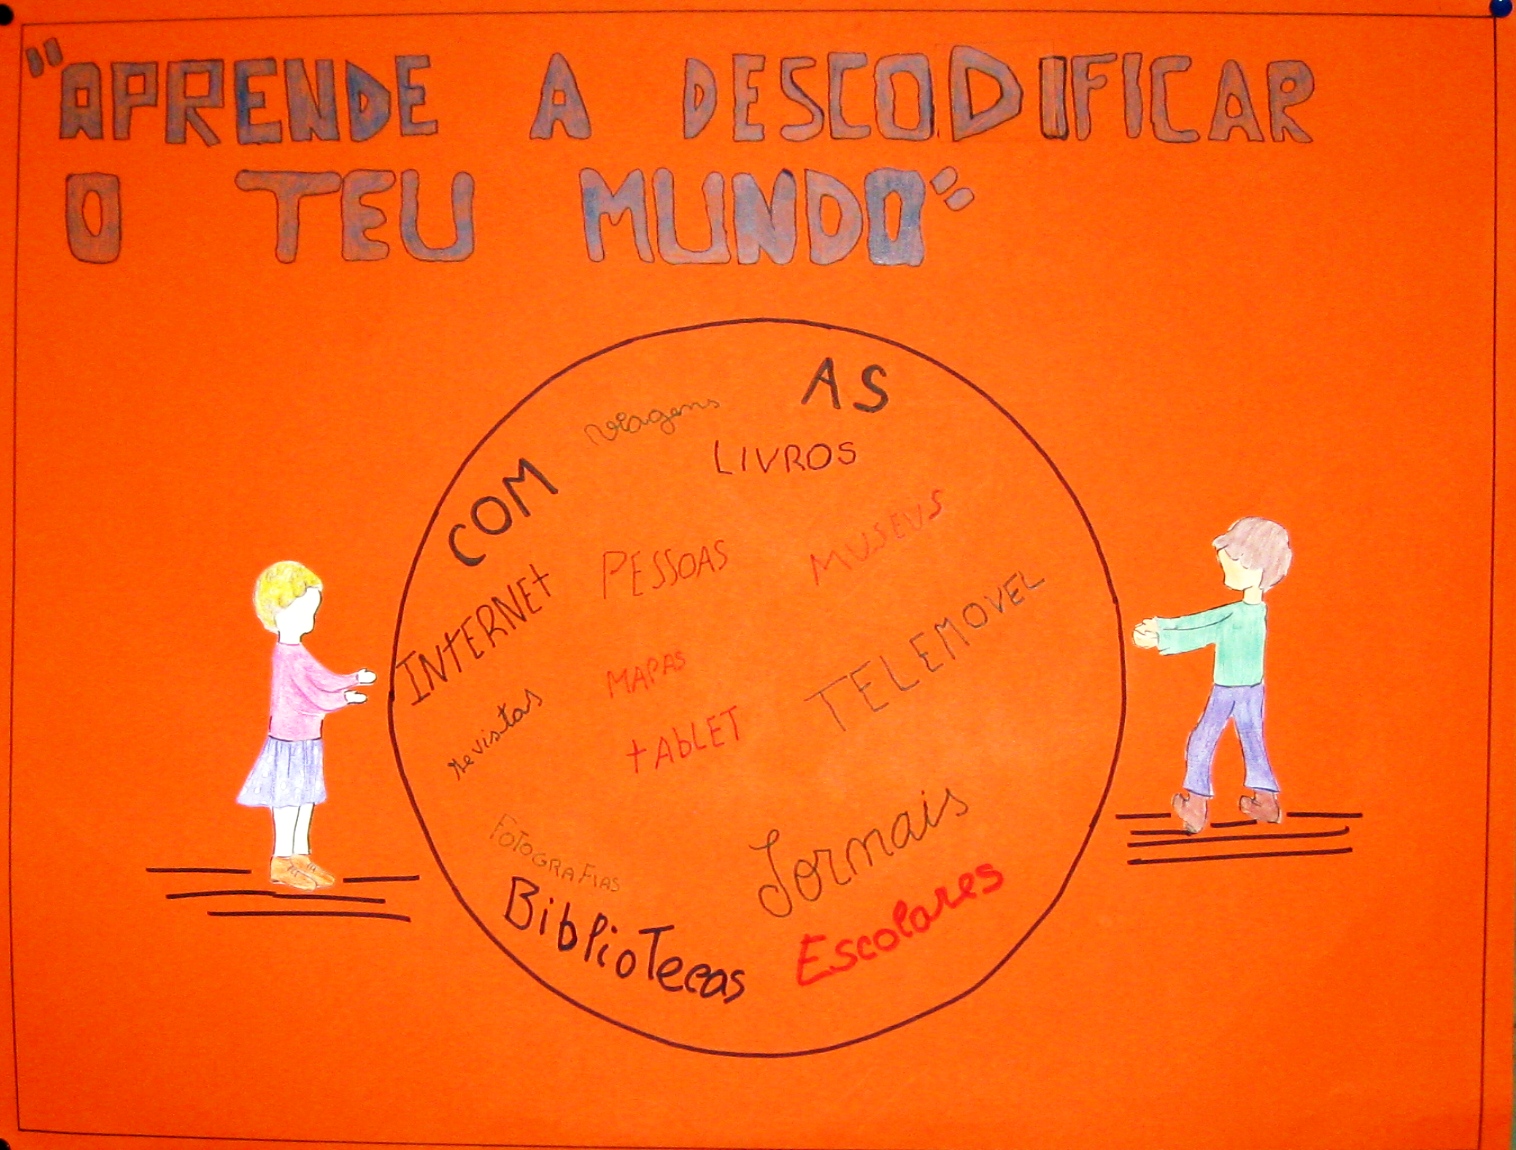 "APRENDE A DESCODIFICAR
O TEU MUNDO"
COM
AS
viagens
LIVROS
INTERNEt
PESSOAS
MUSEUS
revistas
MAPAS
TELEMOVEL
tAbLET
FOTOGRAFIAS
Jornais
BiblioTecas
Escolares